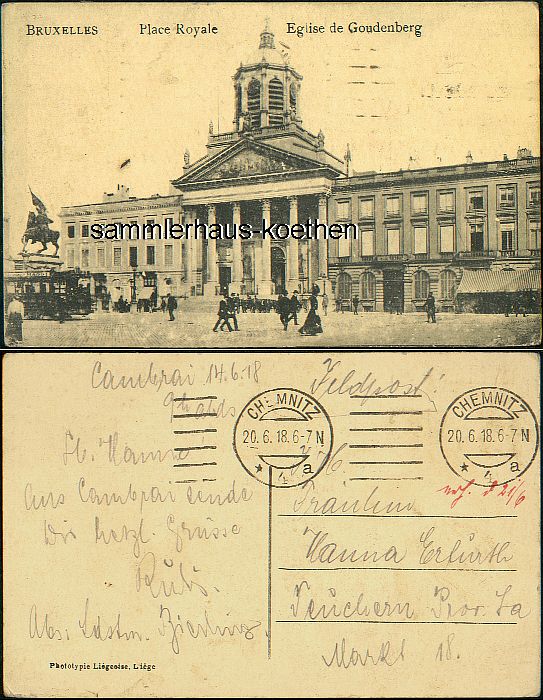 BRUXELLES Place Royale Eglise de Goudenberg
sammlerhaus-koethen
Cambrai 14.6.18
Feldpost!
CHEMNITZ
20.6.18.6-7N
* 4 a
CHEMNITZ
20.6.18.6-7N
* 4 a
Lb. Hanna!
Aus Cambrai sende
Dir herzl. Grüsse
Rudi.
Abs: Ldstm. Bierling.
Fräulein
erh. d 21/6
Hanna Erfurth
Teuchern Prov. Sa
Markt 18.
Phototypie Liégeoise, Liége